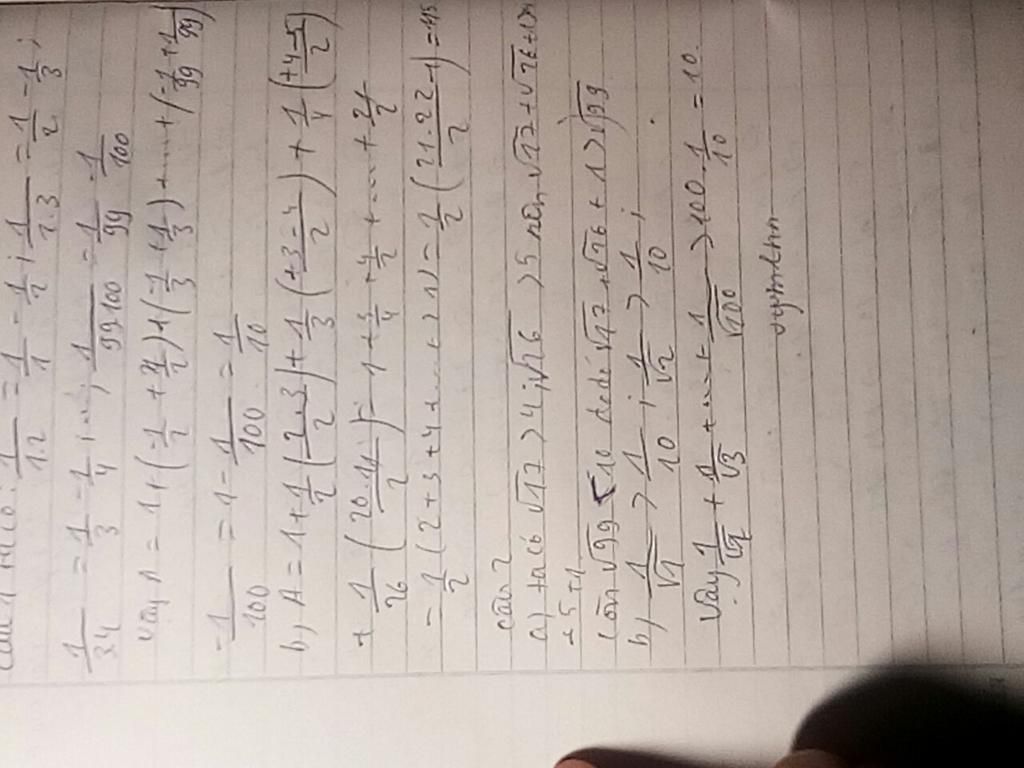 câu 1 ta có: 1/1.2 = 1/1 - 1/2; 1/2.3 = 1/2 - 1/3;
1/34 = 1/3 - 1/4; ...; 1/99.100 = 1/99 - 1/100
Vay A = 1 + (-1/2 + 1/2) + (-1/3 + 1/3) + .... + (-1/99 + 1/99)
- 1/100 = 1 - 1/100 =
b) A = 1 + 1/2 (2.3/2) + 1/3 (+3-4/2) + 1/4 (+4-5/2)
+ 1/20 ( ) = 1 + + 4/2 + .... + 21/2
= 1/2 (2 + 3 + 4 + ... + 21) = 1/2 (21.22/2 - 1) = 115
câu 2
a) ta có √17 > 4; √26 > 5 nên √17 + √26 + 1 > 4
+ 5 + 1
Còn √99 < 10 do đó √17 + √26 + 1 > √99
b) 1/√1 > 1/10; 1/√2 > 1/10;
Vay 1/√1 + 1/√3 + ... + 1/√100 > 100 . 1/10 = 10.